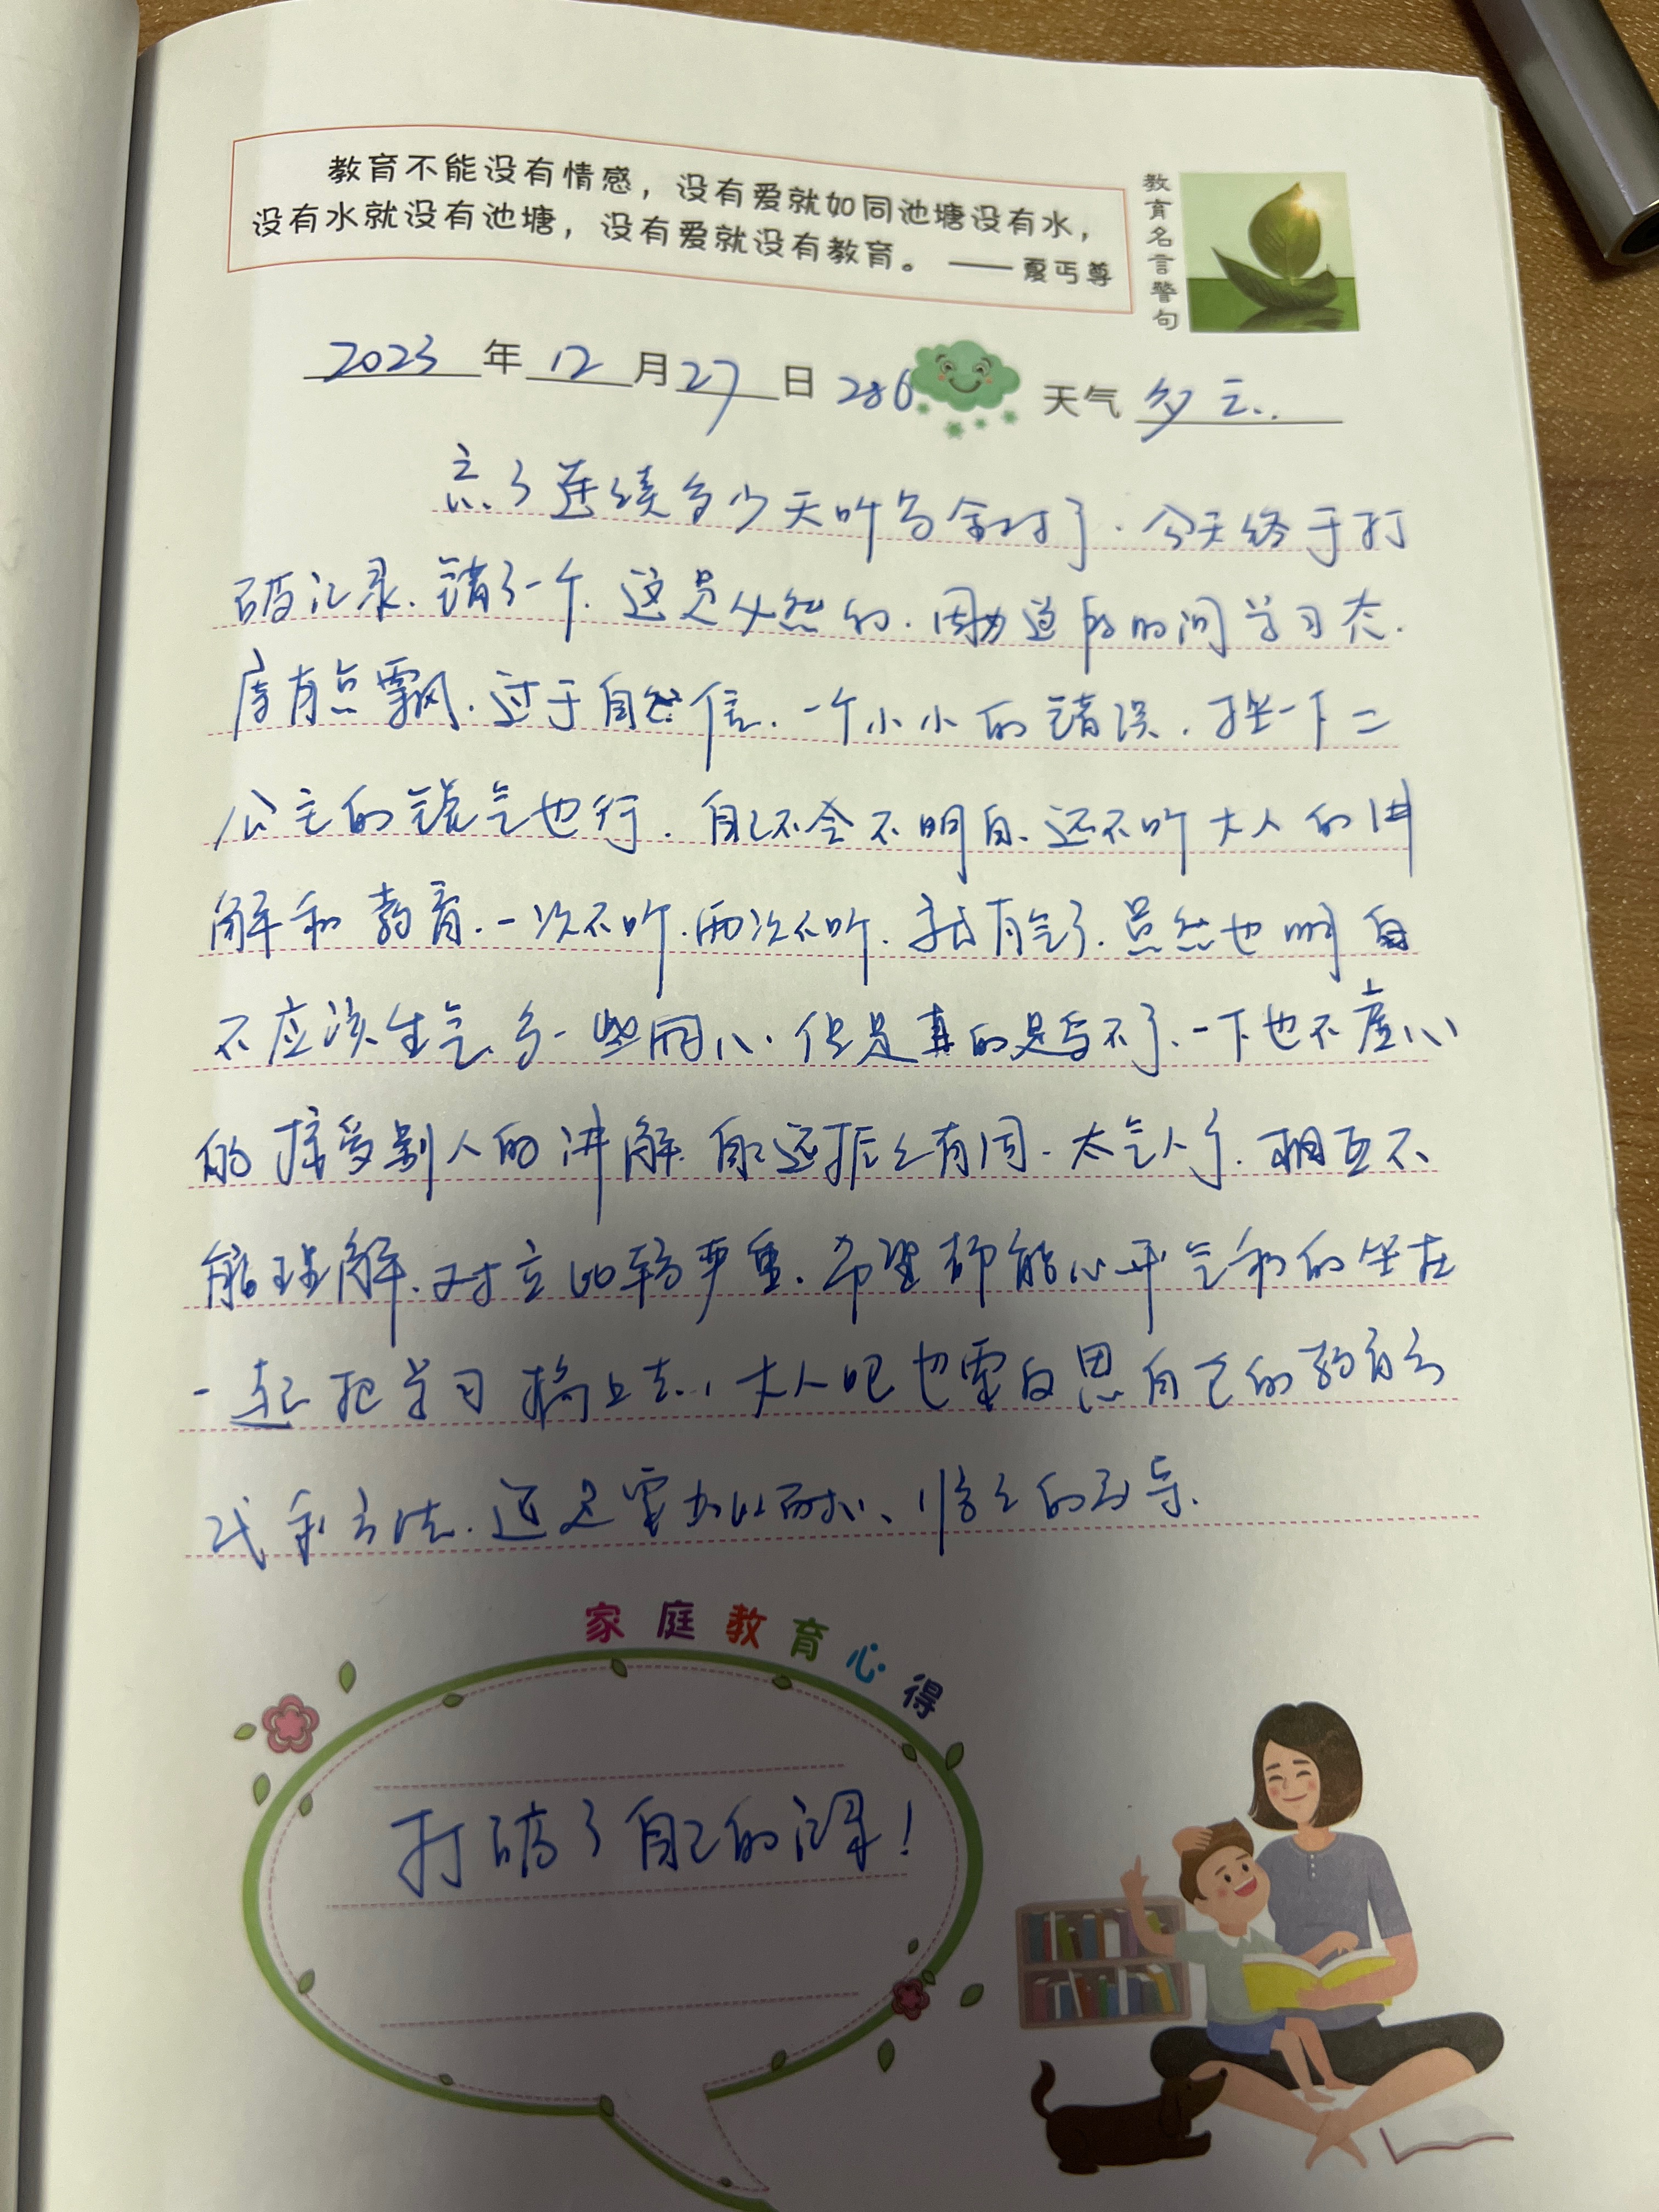 教育不能没有情感，没有爱就如同池塘没有水，
没有水就没有池塘，没有爱就没有教育。 —— 夏丏尊
教育名言警句
2023 年 12 月 27 日 286 天气 多云.
忘了连续多少天听写全对了.今天终于打
破记录.错了一个.这是必然的.因为这段时间学习态.
度有点飘.过于自信.一个小小的错误.挫一下二
公主的锐气也行.自己不会不明白.还不听大人的讲
解和教育.一次不听.两次不听.我有气了.虽然也明白
不应该生气.多一些同心.但是真的是忍不了.一下也不虚心
的接受别人的讲解.自己还振振有词.太气人了.相互不
能理解.对立比较严重.希望都能心平气和的坐在
一起把学习搞上去.大人呢也要反思自己的教育方
式和方法.还是要加以耐心、的引导.
家庭教育心得
打破了自己的记录！